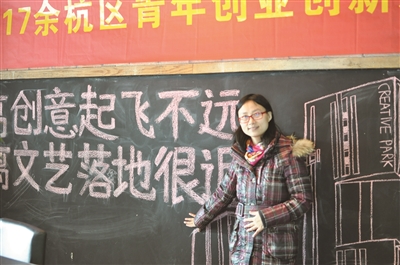 17余杭区青年创业创新
离创意起飞不远
离文艺落地很近
CREATIVE PARK